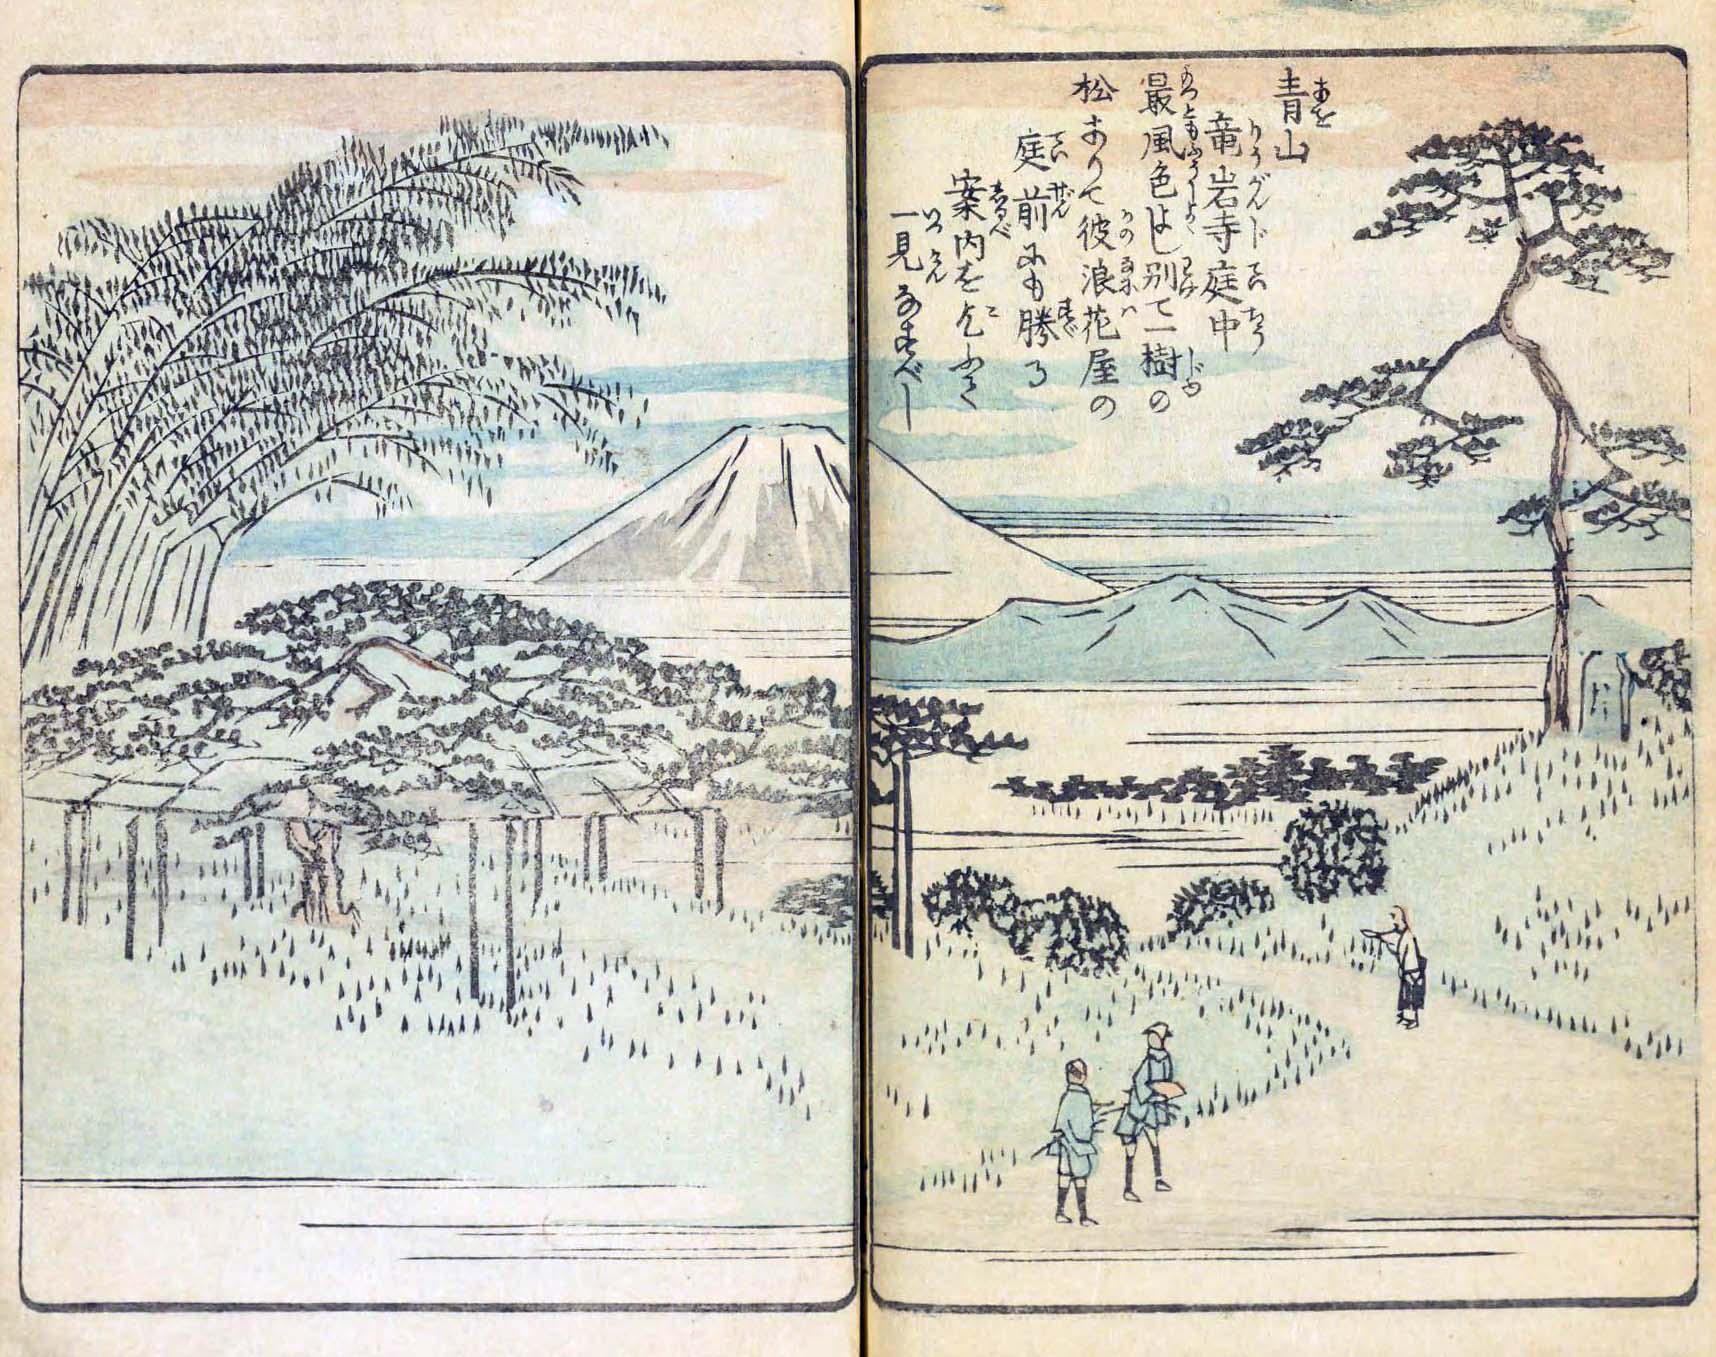 青山
竜岩寺庭中
最風色よし別て一樹の
松ありて彼浪花屋の
庭前にも勝る
案内を乞ふて
一見なすべし